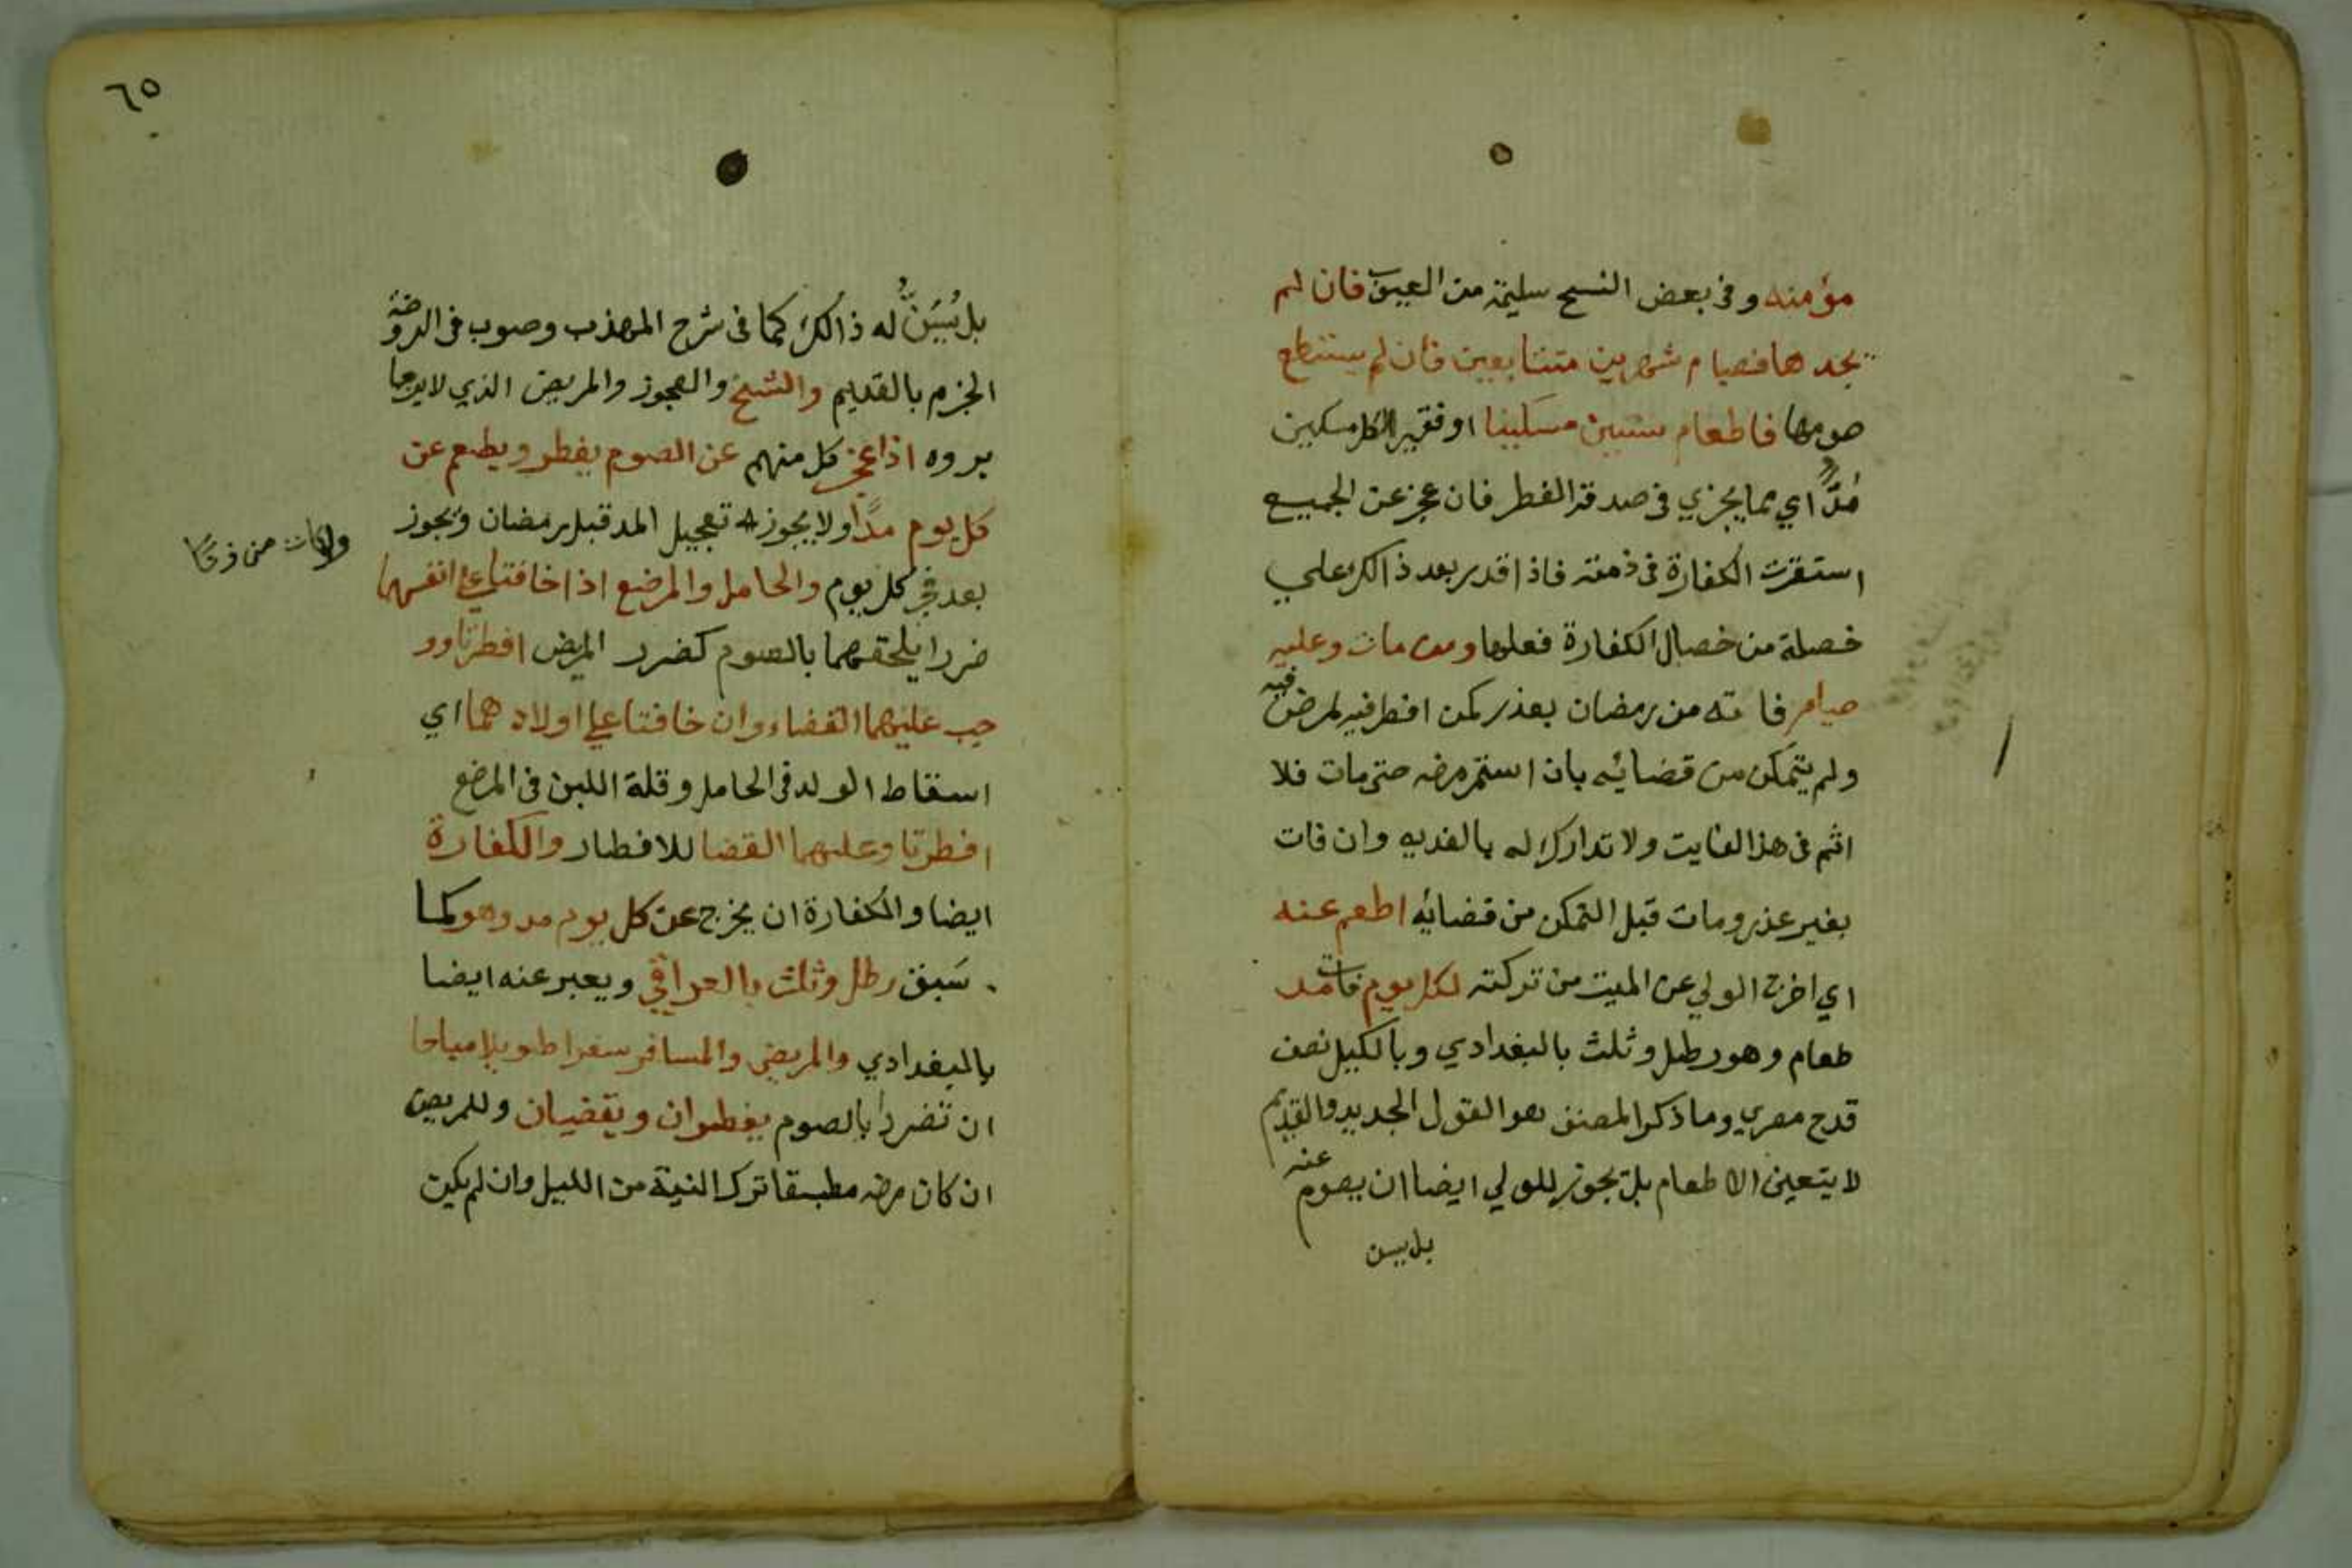 مؤمنه وفي بعض النسخ سليمة من العيوب فان لم
يجدها فصيام شهرين متتابعين فان لم يستطع
صومها فاطعام ستين مسكينا او فقيرا لكل مسكين
مُدًّا اي مما يجزي في صدقة الفطر فان عجز عن الجميع
استقرت الكفارة في ذمته فاذا قدر بعد ذالك علي
خصلة من خصال الكفارة فعلها ومن مات وعليه
صيام فاته من رمضان بعذر كمن افطر فيه لمرض فيه
ولم يتمكن من قضائه بان استمر مرضه حتى مات فلا
اثم في هذا الفايت ولا تدارك له بالفديه وان فات
بغير عذر ومات قبل التمكن من قضائه اطعم عنه
اي اخرج الولي عن الميت من تركته لكل يوم فات مد
طعام وهو رطل وثلث بالبغدادي وبالكيل نصف
قدح مصري وما ذكرا لمصنف هو القول الجديد والقديم
لا يتعين الاطعام بل يجوز للولي ايضا ان يصوم عنه
بل يسن
٦٥
بل يُسَنُّ له ذالك كما في شرح المهذب وصوب في الروضة
الجزم بالقديم والشيخ والعجوز والمريض الذي لا يرجا
بروه اذا عجز كل منهم عن الصوم يفطر ويطعم عن
كل يوم مدًّا ولا يجوز له تعجيل المد قبل رمضان ويجوز
بعد فجر كل يوم والحامل والمرضع اذا خافتا على انفسهما
ضررا يلحقهما بالصوم كضرر المريض افطرتا وو
جب عليهما القضاء وان خافتا علي اولادهما اي
اسقاط الولد في الحامل وقلة اللبن في المرضع
افطرتا وعليهما القضا للافطار والكفارة
ايضا والكفارة ان يخرج عن كل يوم مد وهو كما
سَبق رطل وثلث بالعراقي ويعبر عنه ايضا
بالبغدادي والمريض والمسافر سفرا طويلا مباحا
ان تضررا بالصوم يفطران ويقضيان وللمريض
ان كان مرضه مطبقا ترك النية من الليل وان لم يكن